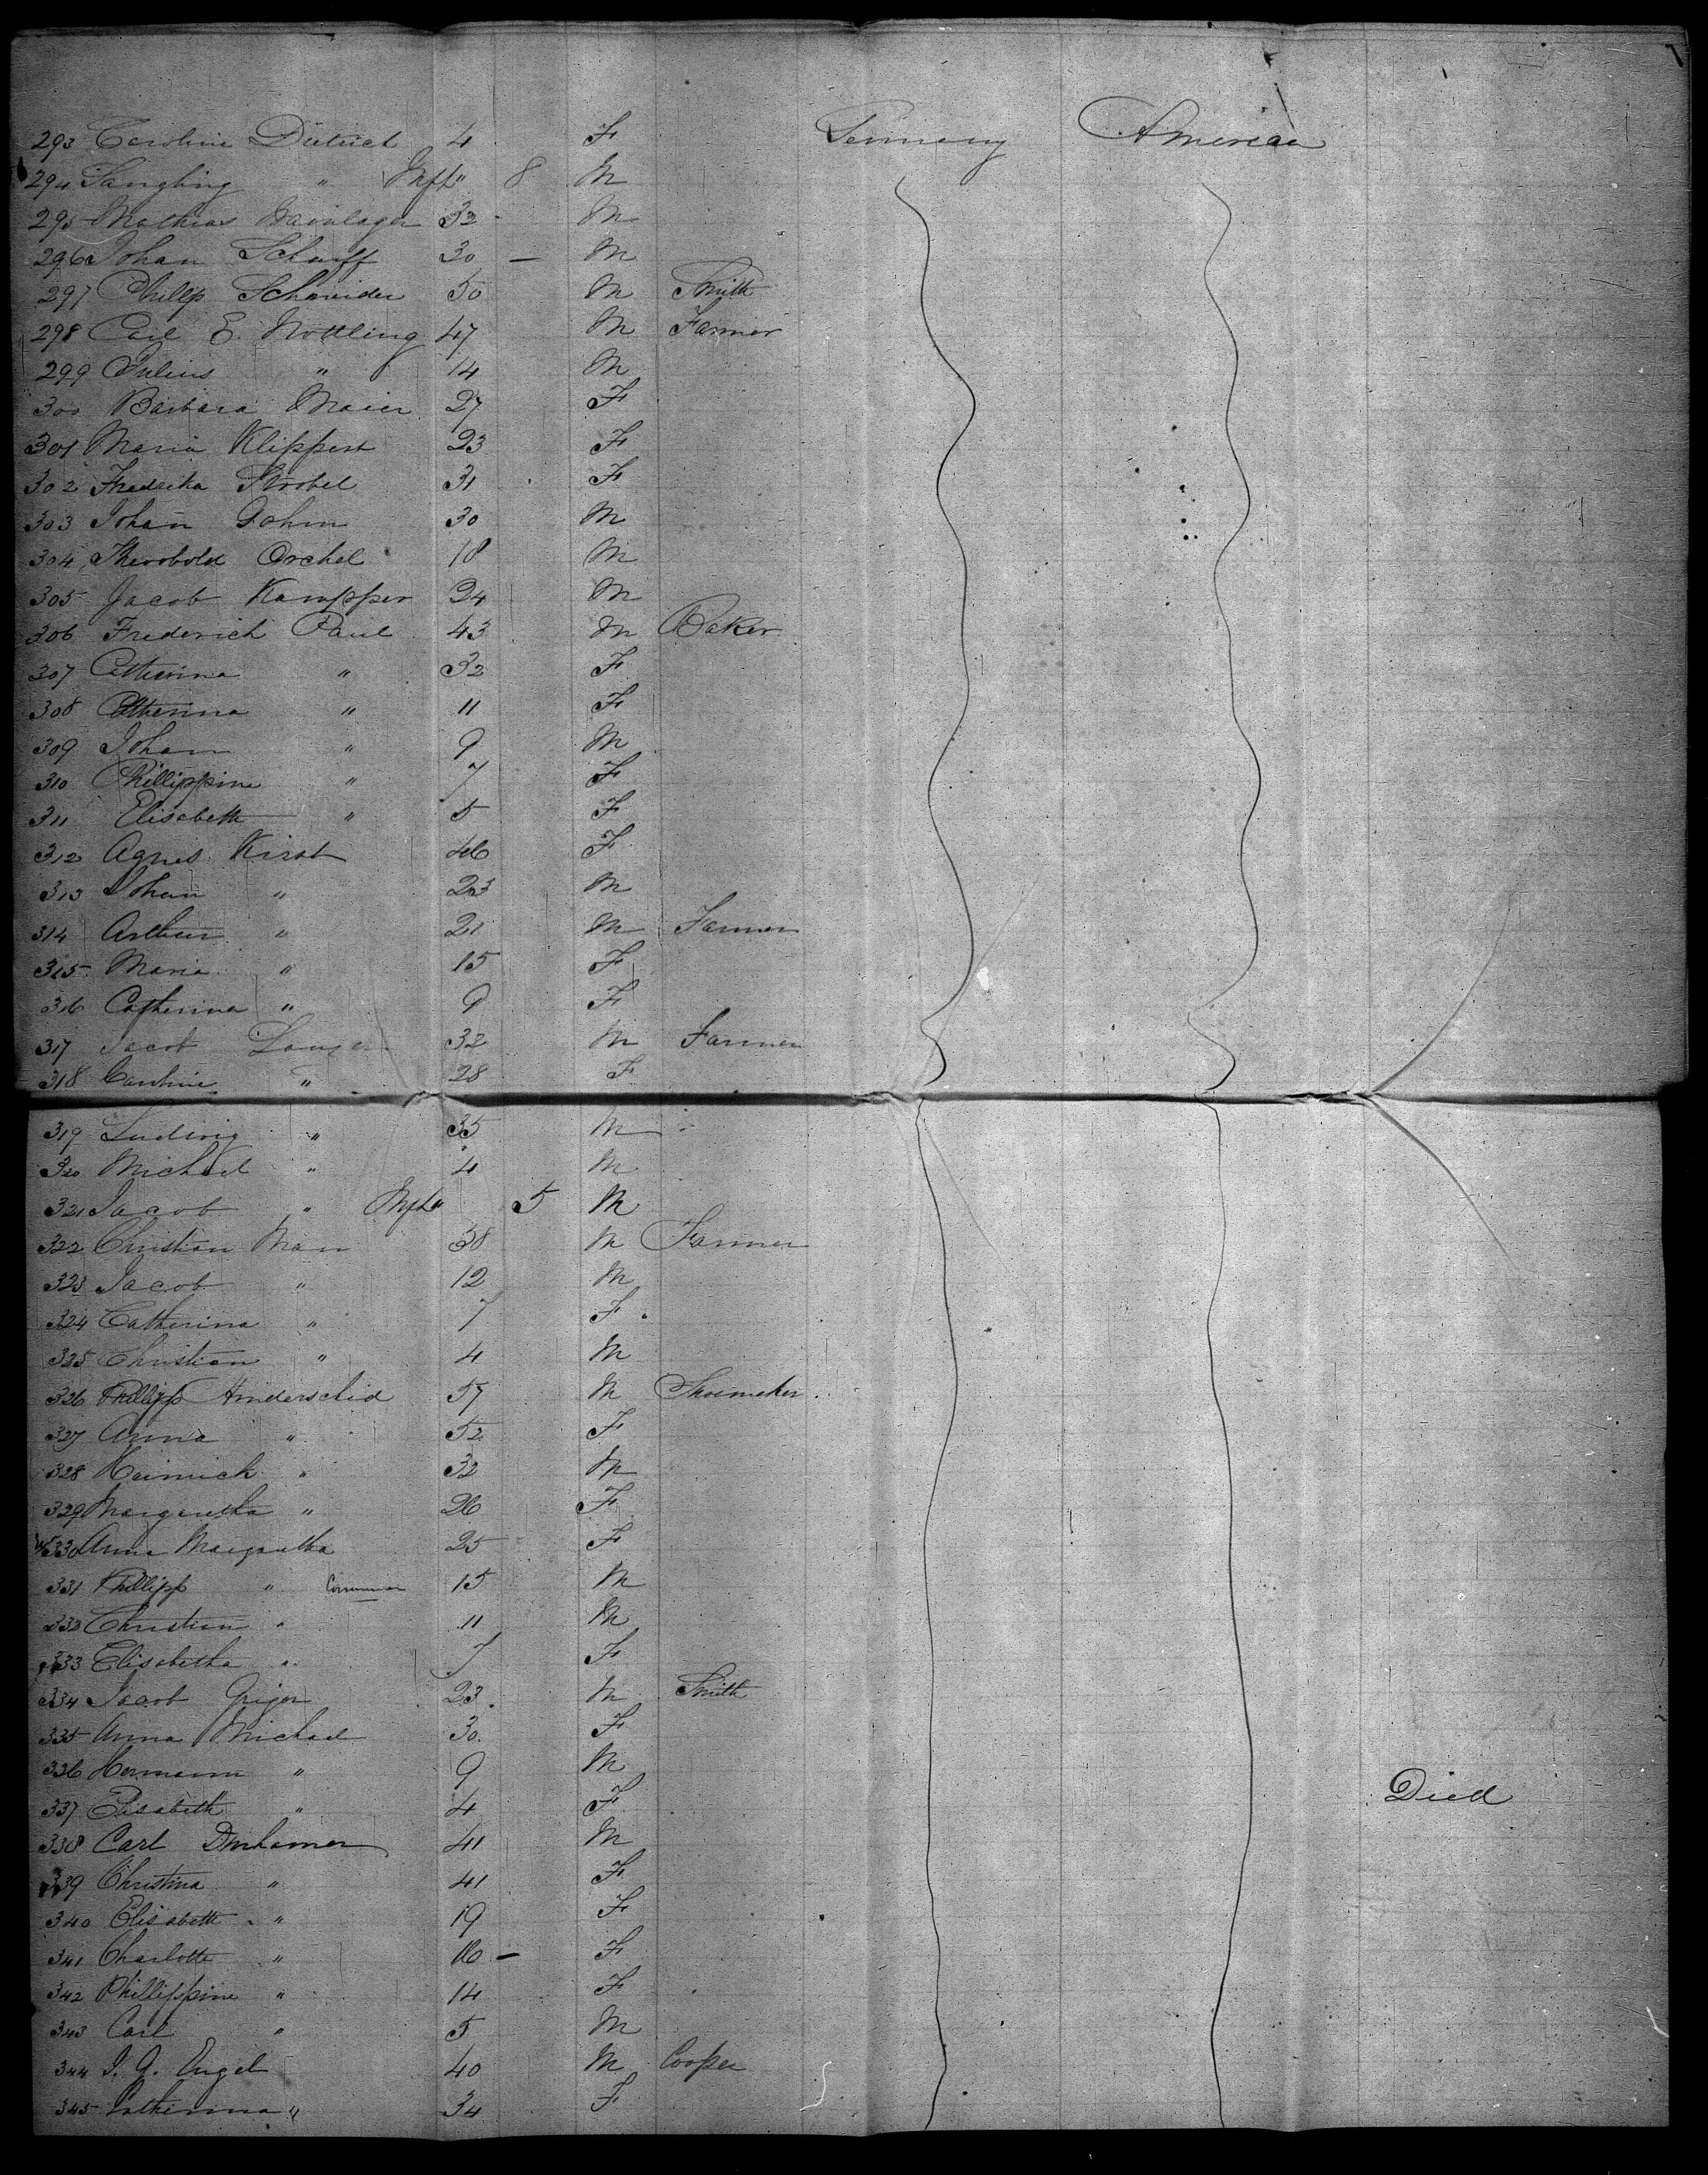 293 Caroline Dietrich 4 F Germany America
294 " Inft" 8 M
295 Mathias 32 M
296 Johan Scharff 30 — M
297 Philip Schneider 50 M Smith
298 Carl E. Nottling 47 M Farmer
299 Julius " 14 M
300 Barbara Maier 27 F
301 Maria Klippert 23 F
302 Fredrika Strobel 31 F
303 Johan Dohm 30 M
304 Theobold Orchel 18 M
305 Jacob Kampper 24 M
306 Frederich Paul 43 M Baker
307 Catherina " 32 F
308 Catherina " 11 F
309 Johan " 9 M
310 Phillippine " 7 F
311 Elisabeth " 5 F
312 Agnes Kirst 46 F
313 Johan " 23 M
314 Arthur " 21 M Farmer
315 Maria " 15 F
316 Catherina " 9 F
317 Jacob 32 M Farmer
318 Caroline " 28 F
319 Ludwig " 35 M
320 Michael " 4 M
321 Jacob " Inft" 5 M
322 Christian Man 38 M Farmer
323 Jacob " 12 M
324 Catherina " 7 F
325 Christian " 4 M
326 Phillipp Hinderschid 57 M Shoemeker
327 Anna " 52 F
328 Heinrich " 32 M
329 Margaretha " 26 F
330 Anna Margaretha 25 F
331 Phillipp " 15 M
332 Christian " 11 M
333 Elisabetha " 7 F
334 Jacob Griger 23 M Smith
335 Anna Michael 30 F
336 Hermann " 9 M
337 Elisabeth " 4 F Died
338 Carl 41 M
339 Christina " 41 F
340 Elisabeth " 19 F
341 Charlotte " 16 — F
342 Phillippine " 14 F
343 Carl " 5 M
344 J. G. Engel 40 M Cooper
345 Catherina " 34 F